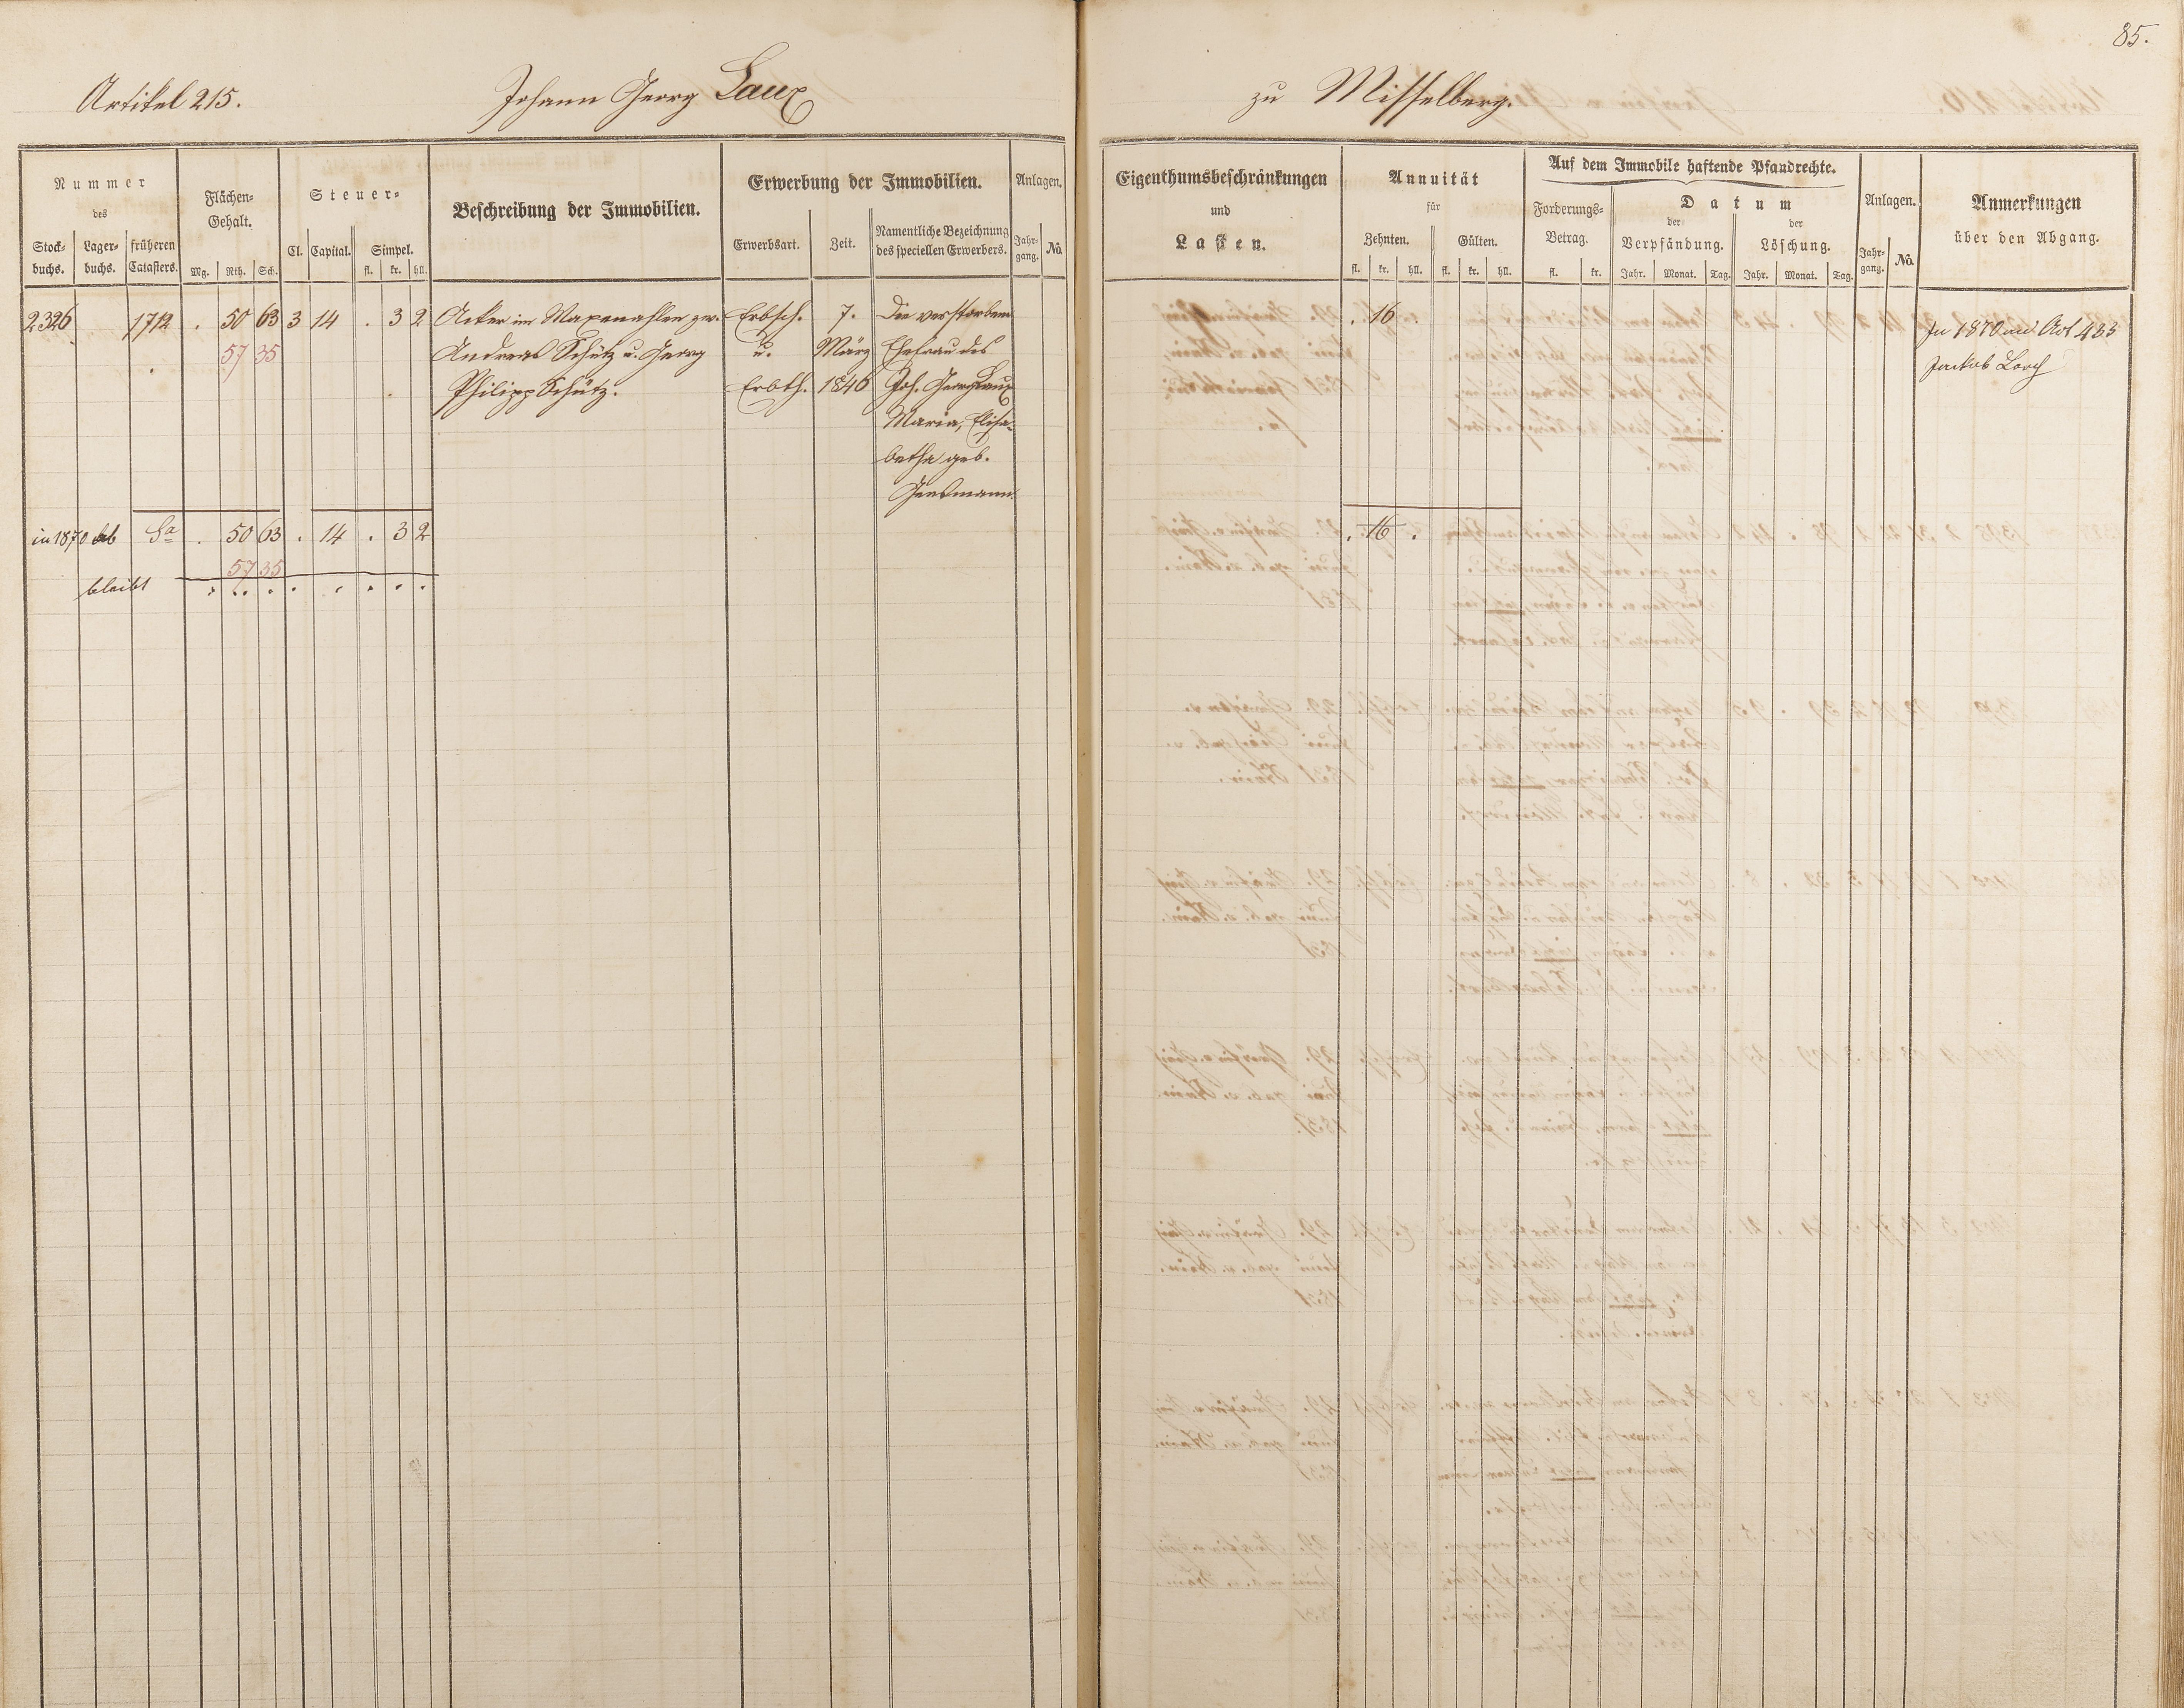 85.
Artikel 215. Johann Georg Laux zu Misselberg.
Nummer
des
Stock-buchs. Lager-buchs. früheren Catasters.
Flächen-Gehalt.
Mg. Rth. Sch.
Steuer-
Cl. Capital. Simpel.
fl. kr. hll.
Beschreibung der Immobilien.
Erwerbung der Immobilien.
Erwerbsart. Zeit. Namentliche Bezeichnung des speciellen Erwerbers.
Anlagen.
Jahr-gang. No.
Eigenthumsbeschränkungen
und
Lasten.
Annuität
für
Zehnten. Gülten.
fl. kr. hll. fl. kr. hll.
Auf dem Immobile haftende Pfandrechte.
Forderungs-Betrag.
fl. kr.
Datum
der Verpfändung. der Löschung.
Jahr. Monat. Tag. Jahr. Monat. Tag.
Anlagen.
Jahr-gang. No.
Anmerkungen
über den Abgang.
2326 1712 . 50 63 3 14 . 3 2 Acker im zw. Erbsch. 7. Die verstorbene . 16 . In 1870 auf Art 433
57 35 Andreas Schütz u. Georg u. März Ehefrau des Jackob Lorch
Philipp Schütz. Erbth. 1846 Joh. Georg Laux
Maria, Elisa-
betha geb.
in 1870 ab Sa . 50 63 . 14 . 3 2 . 16 .
57 35
bleibt . . . . . . . .